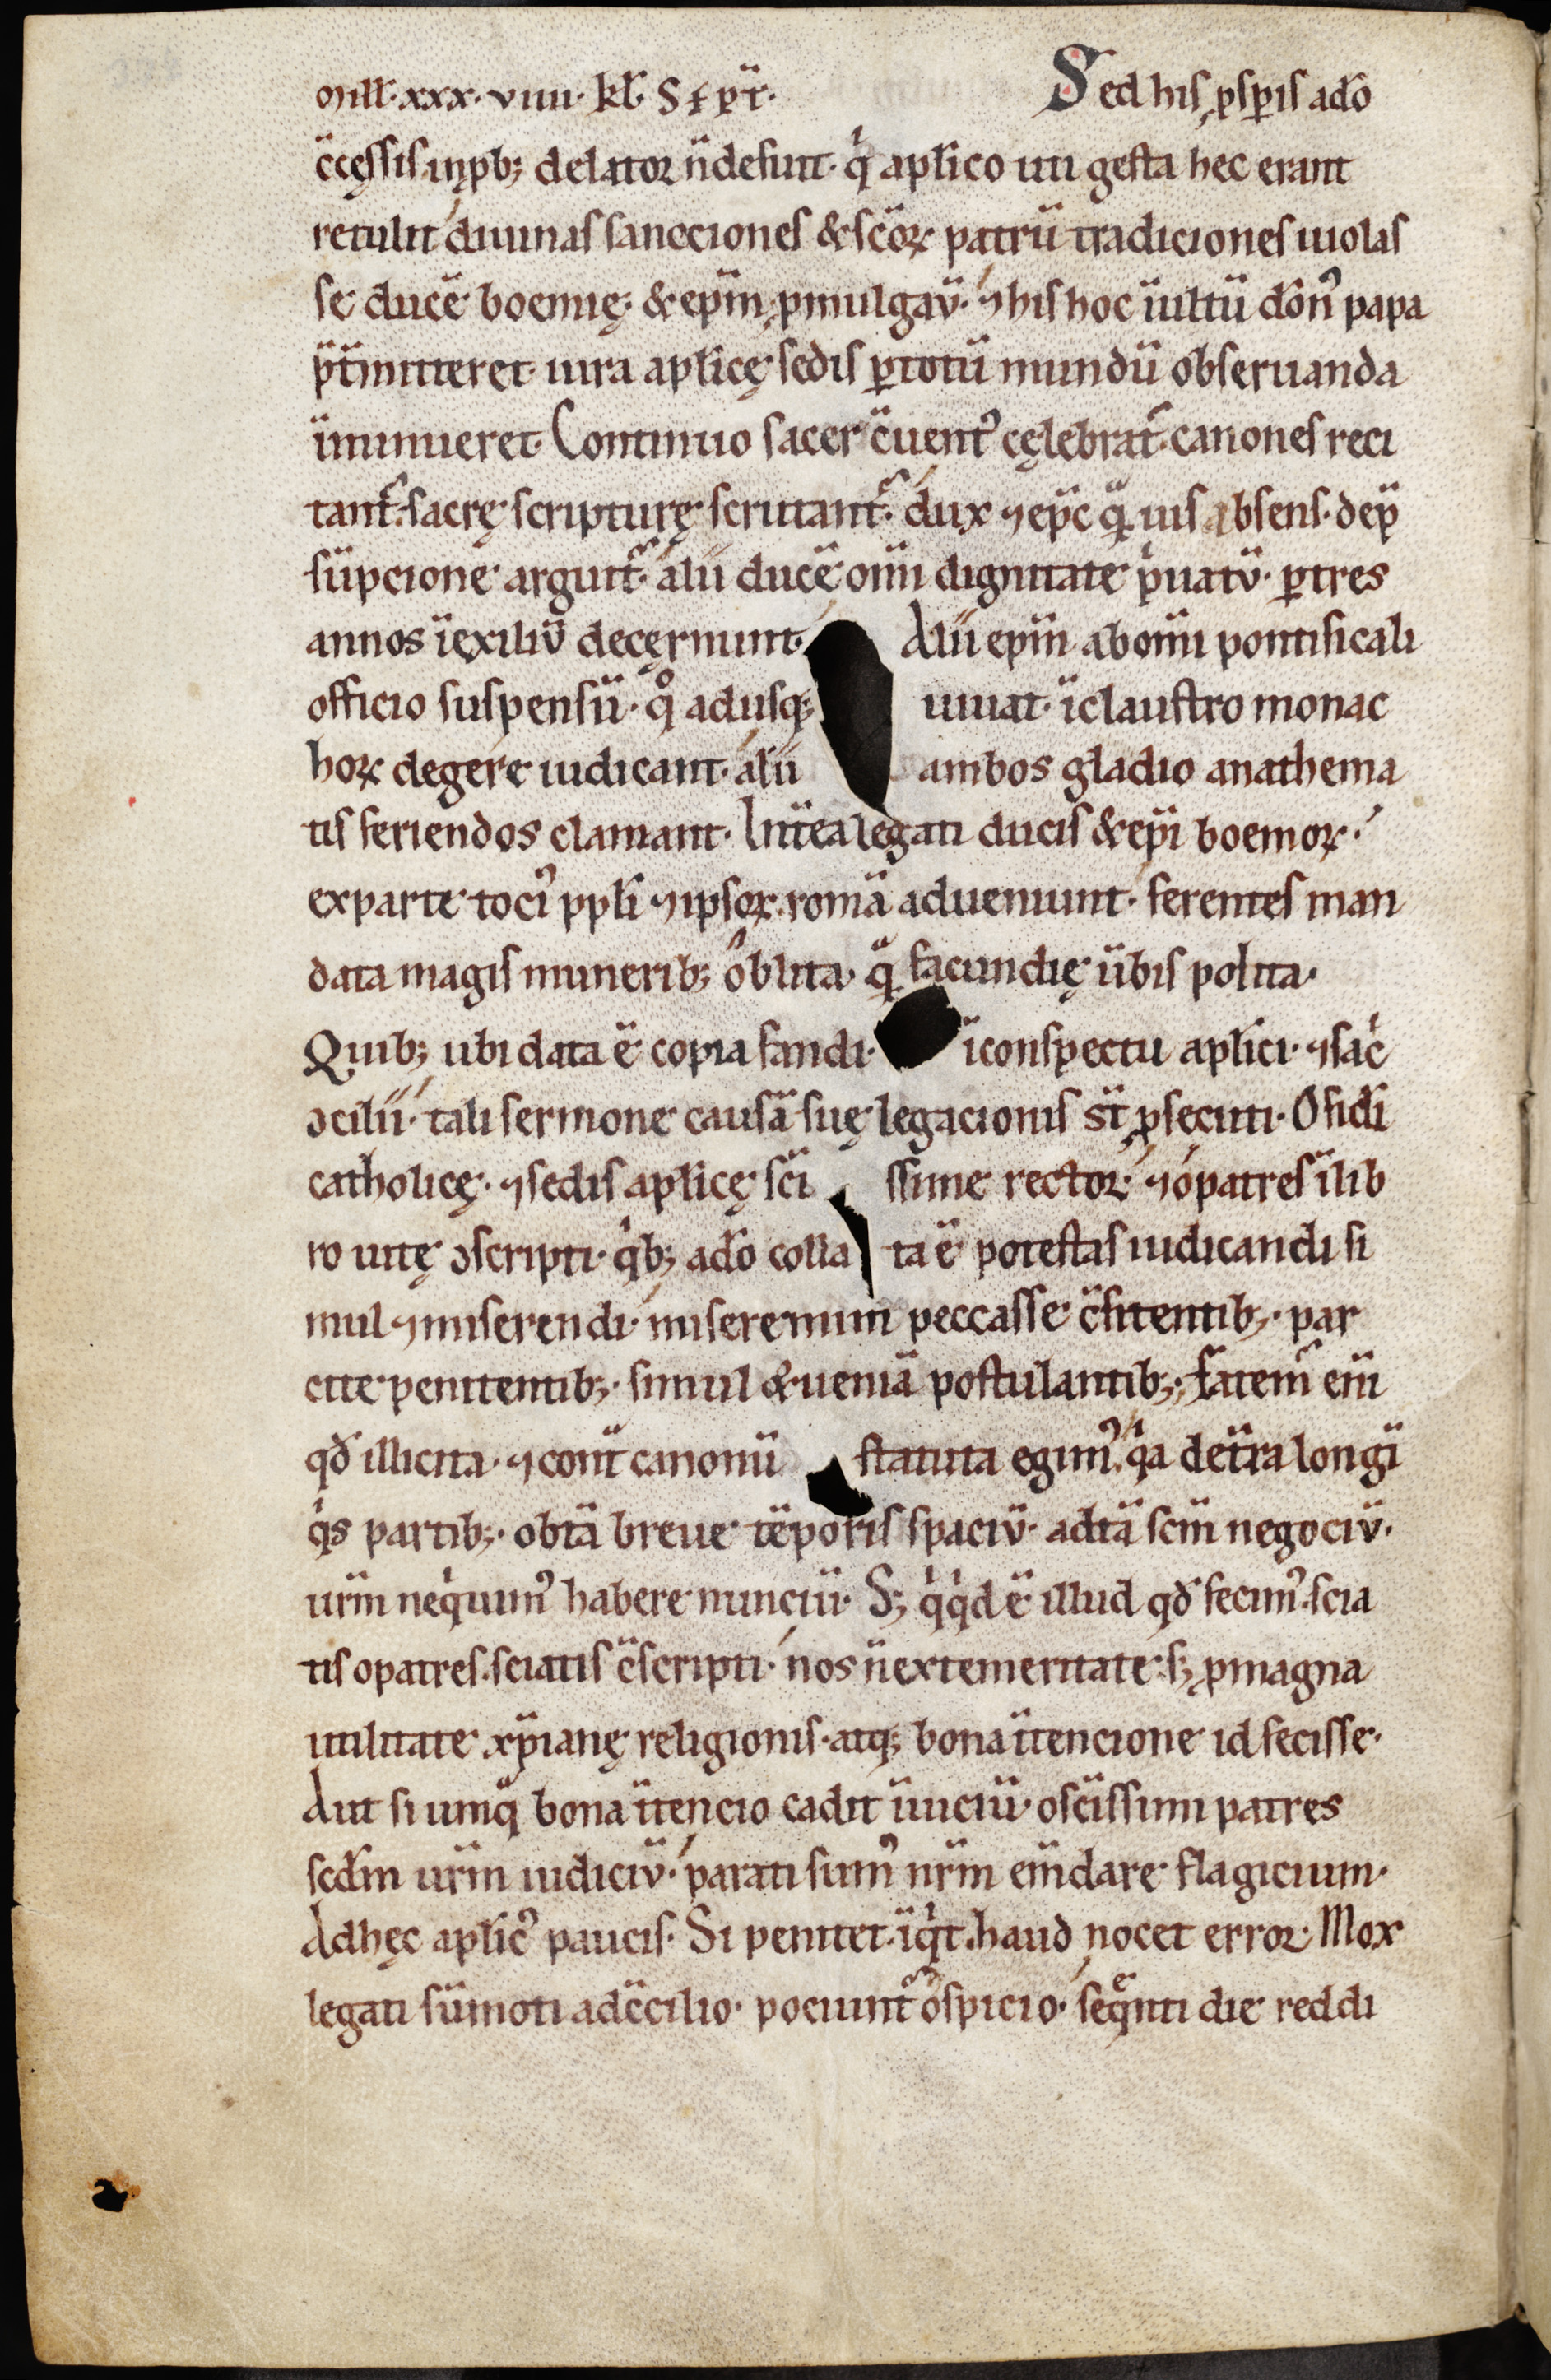 mill̅· xxx· viiii· kl̅· Sępt̅· Sed his ꝓspis̅ a d̅o
c̅cęssis in pb; delator n̅ defuit· qͥ apl̅ico uti gesta hec erant
retulit divinas sancciones & sc̅oꝝ patru̅ tradiciones violas
se duce̅ boemię· & ep̅m ꝓmulgav̅· ⁊ his hoc i̅ultu̅ do̅n᾽ papa
p̅t̅mitteret· iura apl̅icę sedis ꝑ totu̅ mundu̅ observanda
i̅minueret· Continuo sacer c̅vent᾽ cęlebrat᷑· canones reci
tant᷑· sacrę scripturę scrutant᷑· dux ⁊ ep̅c qͣ̃vis absens· de p̅
su̅pcione arguit᷑· alii duce̅ om̅i dignitate pͥvatu̅· ꝑ tres
annos i̅ exiliu̅ decęrnunt· Alii ep̅m ab om̅i pontificali
officio suspensu̅· qͦ adusq; vivat· i̅ claustro monac
hoꝝ degere iudicant· alii ambos gladio anathema
tis feriendos clamant· Int̅ea legati ducis & ep̅i boemoꝝ·
ex parte toci᾽ ppl̅i ⁊ ipsoꝝ· roma̅ adveniunt· ferentes man
data magis munerib; oblita· qͣ̃ facundię v̅bis polita·
Quib; ubi data e̅ copia fandi· i̅ conspectu apl̅ici· ⁊ sacͥ
ↄcilii· tali sermone causa̅ suę legacionis st̅ ꝓsęcuti· O fid̅i
catholicę· ⁊ sedis apl̅icę sc̅i ssime rector· ⁊ o patres i̅ lib
ro vitę ↄscripti· qͥb; a d̅o colla ta e̅ potestas iudicandi si
mul ⁊ miserendi· miseremini peccasse c̅fitentib;· par
cite penitentib;· simul & venia̅ postulantib;· fatem᷑ eni̅
qd̅ illicita· ⁊ cont̅ canonu̅ statuta egim᾽· qͥa de t̅ra longi̅
qͥs partib;· ob ta̅ breve te̅poris spaciu̅· ad ta̅ sc̅m negociu̅·
vr̅m neqͥvim᾽ habere nunciu̅· S; qͥqͥd e̅ illud qd̅ fecim᾽· scia
tis o patres· sciatis c̅scripti· nos n̅ ex temeritate· s; ꝓ magna
utilitate xp̅ianę religionis· atq; bona i̅tencione id fecisse·
Aut si umqͣ̃ bona i̅tencio cadit i̅ viciu̅· o sc̅issimi patres
scd̅m vr̅m iudiciu̅· parati sum᾽ nr̅m em̅dare flagicium·
Ad hęc apl̅ic᾽ paucis· Si penitet· i̅qͥt· haud nocet error· Mox
legati su̅moti a dc̅cilio· pociunt᷑ ospicio· seqͤnti die reddi